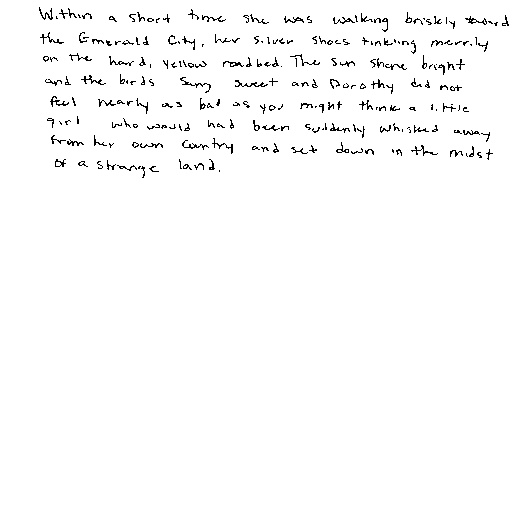 Within a short time she was walking briskly toward
the Emerald City, her silver shoes tinkling merrily
on the hard, yellow roadbed. The sun shone bright
and the birds sang sweet and Dorothy did not
feel nearly as bad as you might think a little
girl who would had been suddenly whisked away
from her own country and set down in the midst
of a strange land.